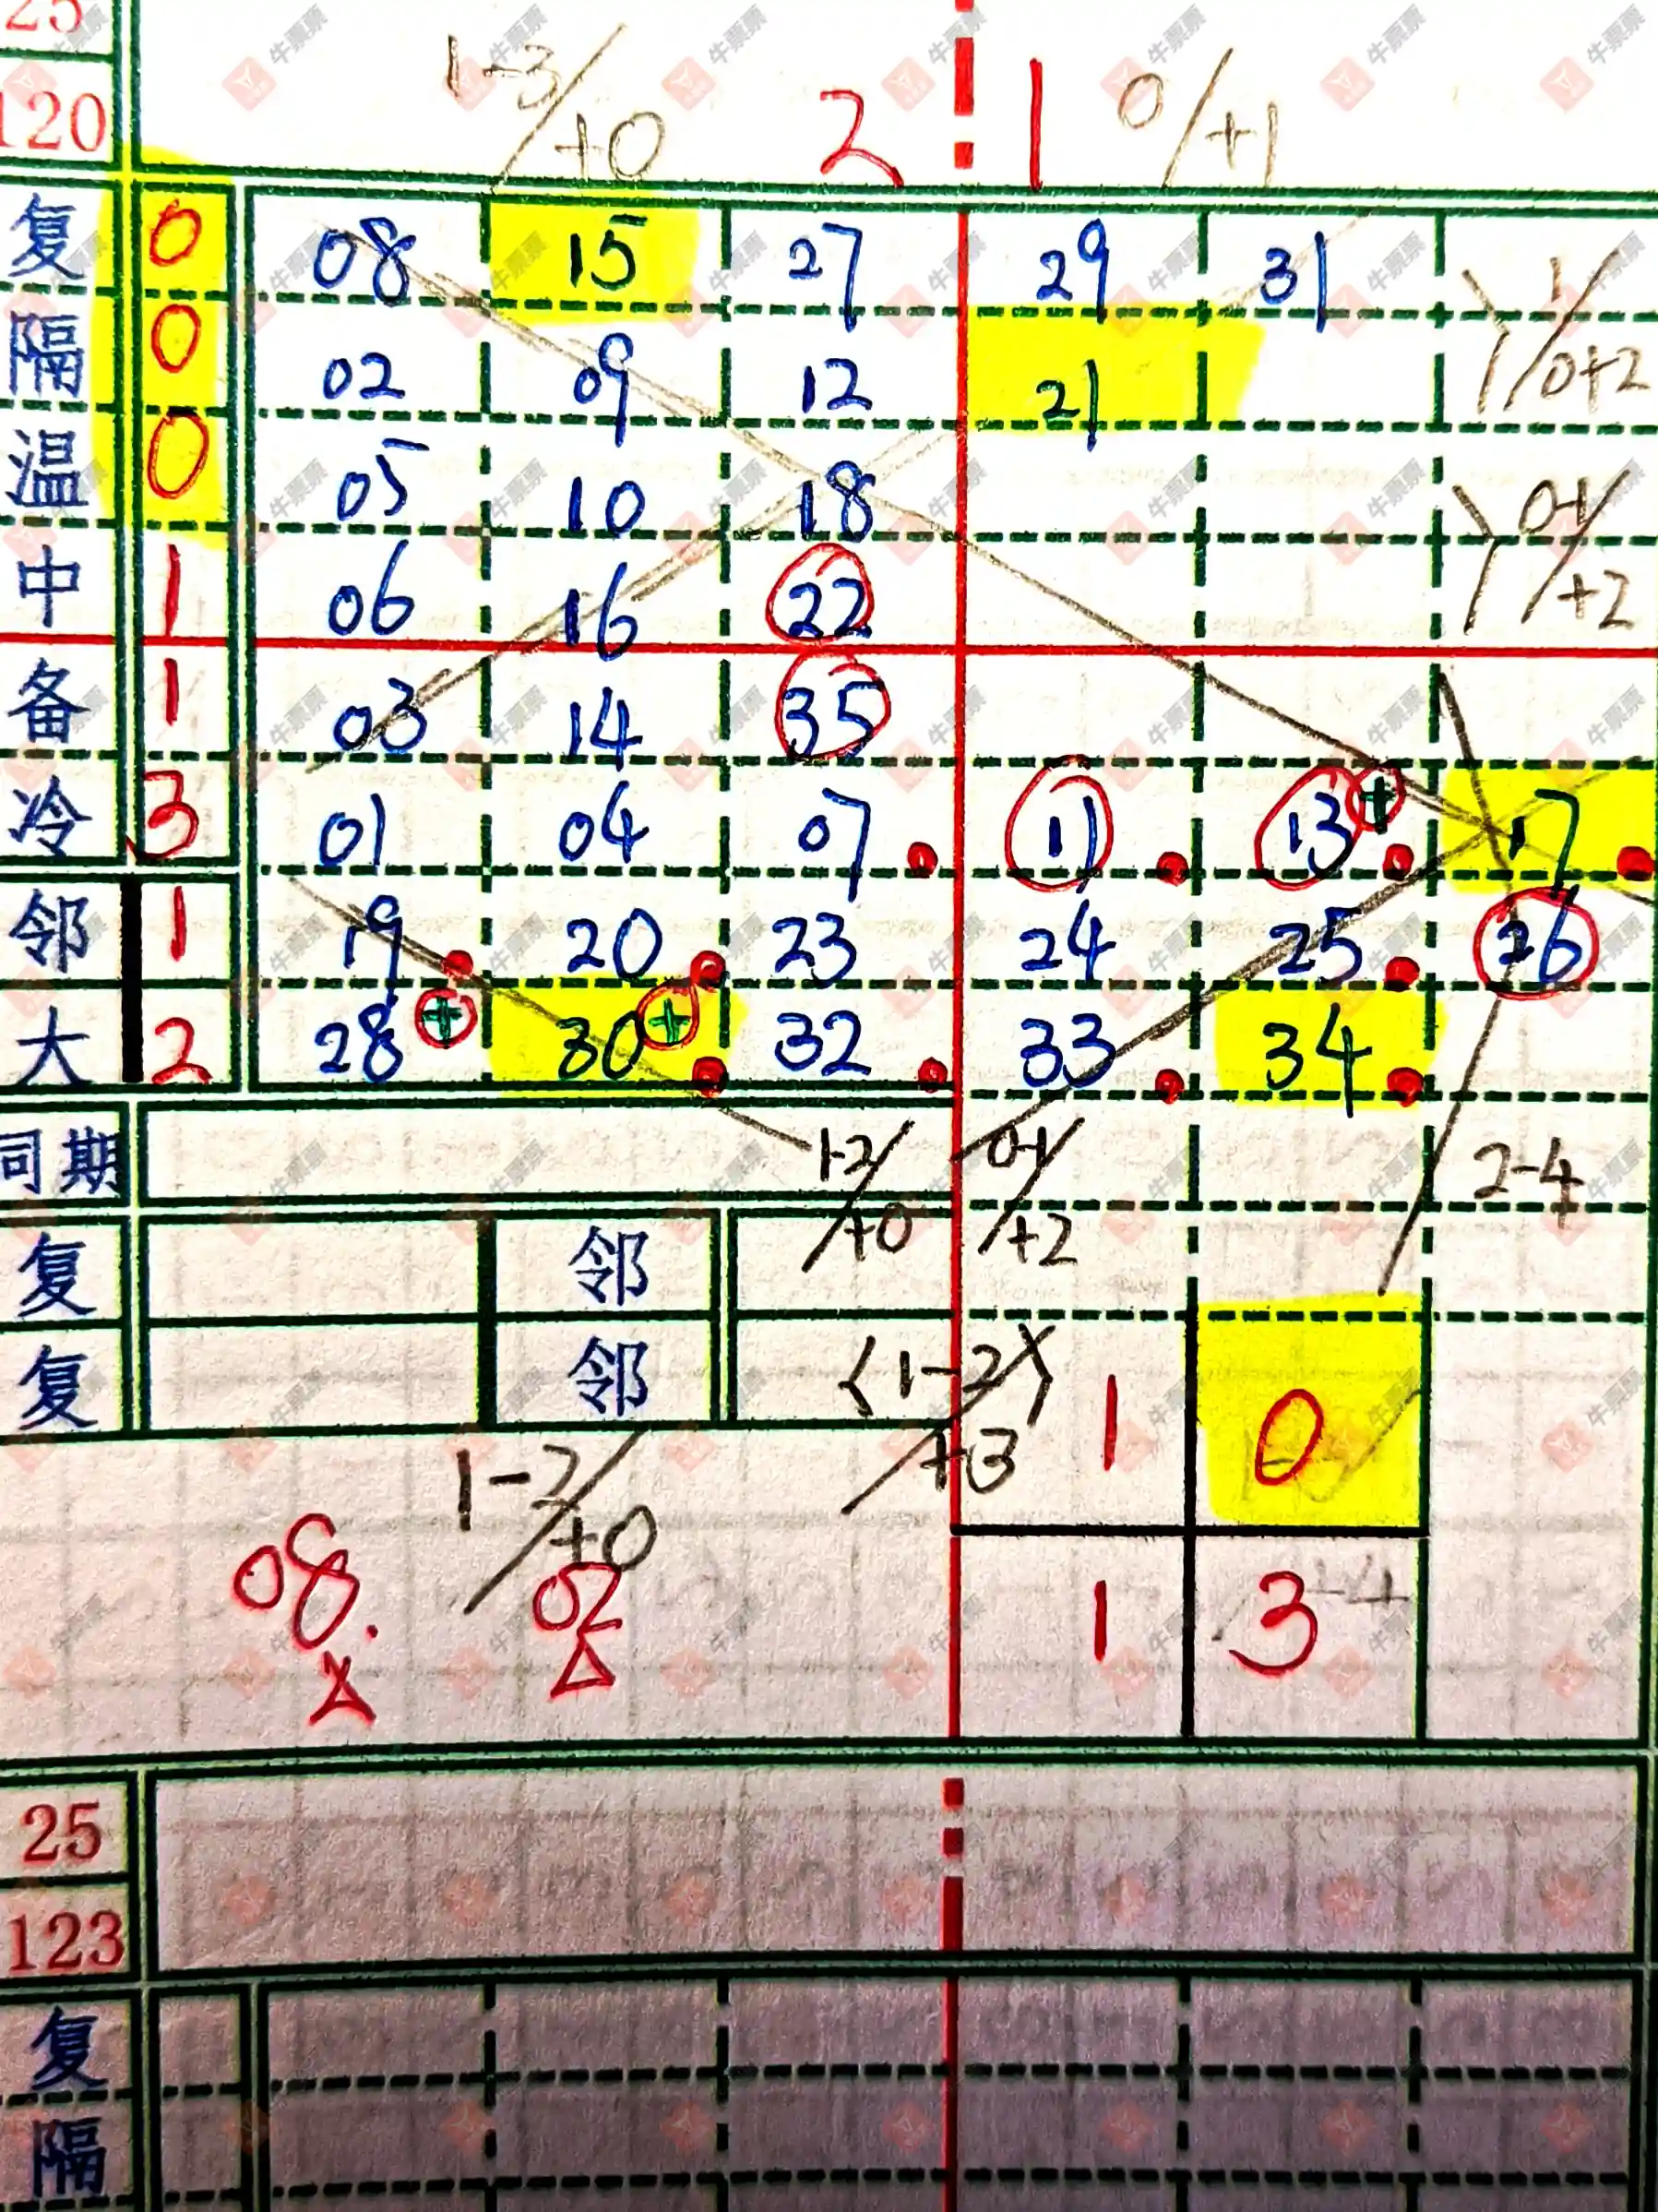 25
120 1-3/+0 2 1 0/+1
复 0 08 15 27 29 31 1/0+2
隔 0 02 09 12 21
温 0 05 10 18 0-1/+2
中 1 06 16 22
备 1 03 14 35
冷 3 01 04 07 11 13 + 17
邻 1 19 20 23 24 25 26
大 2 28 + 30 + 32 33 34
同期 1-2/+0 0-1/+2 2-4
复 邻
复 邻 <1-2>/+3 1 0
1-2/+0
08. 02 1 3
25
123
复
隔
牛票票